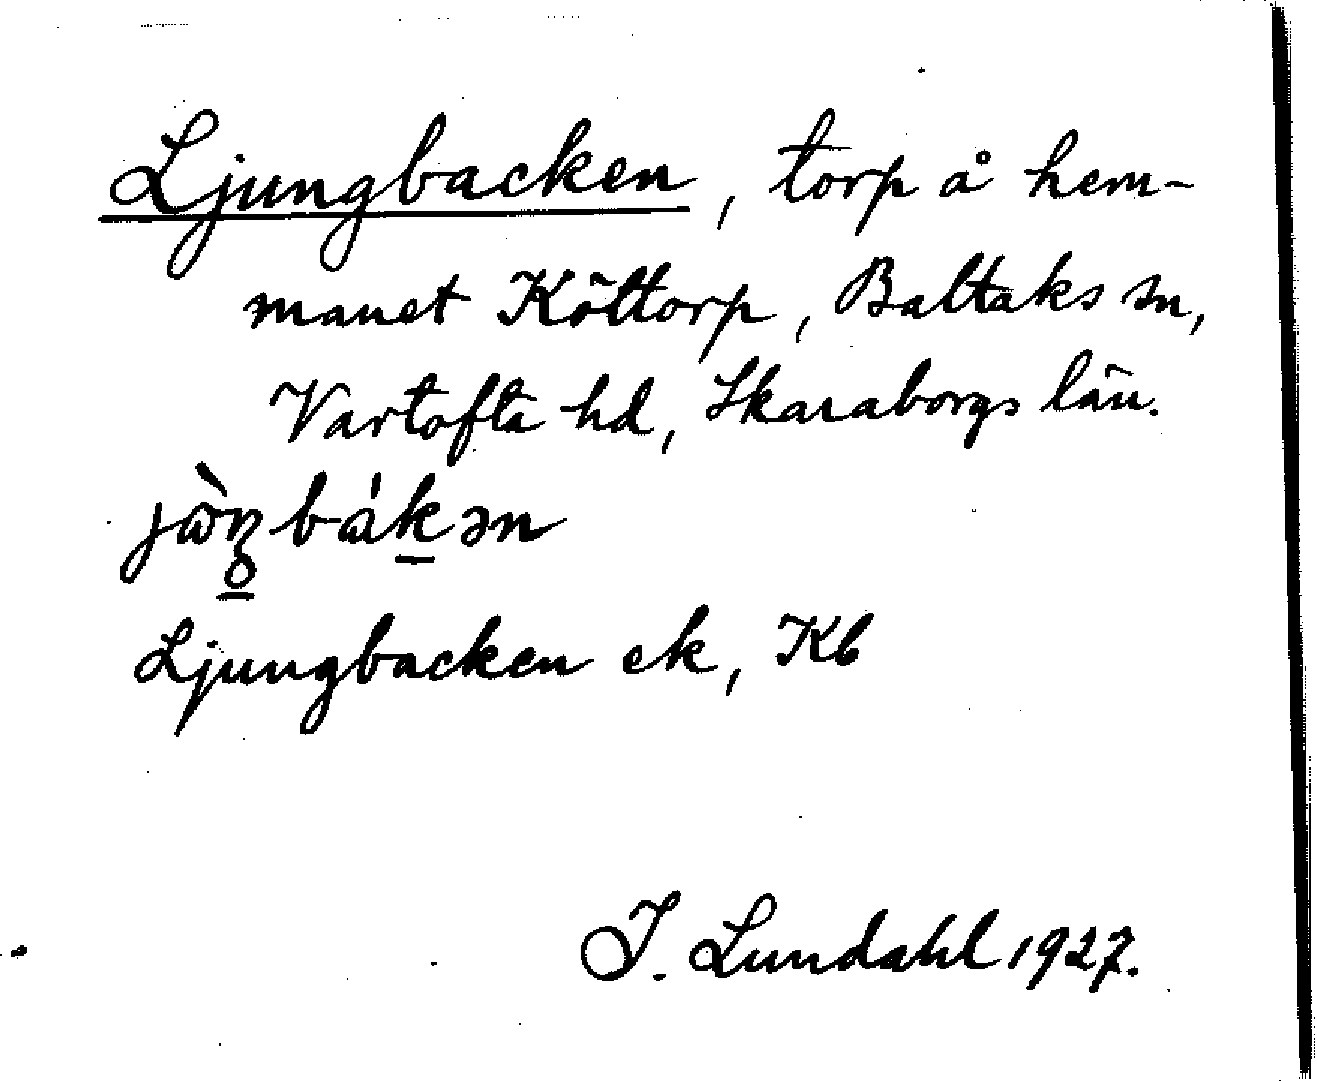 Ljungbacken, torp å hem-
manet Köttorp, Baltaks sn,
Vartofta hd, Skaraborgs län.
jὼŋbákən
Ljungbacken ek, Kb
I. Lundahl 1927.